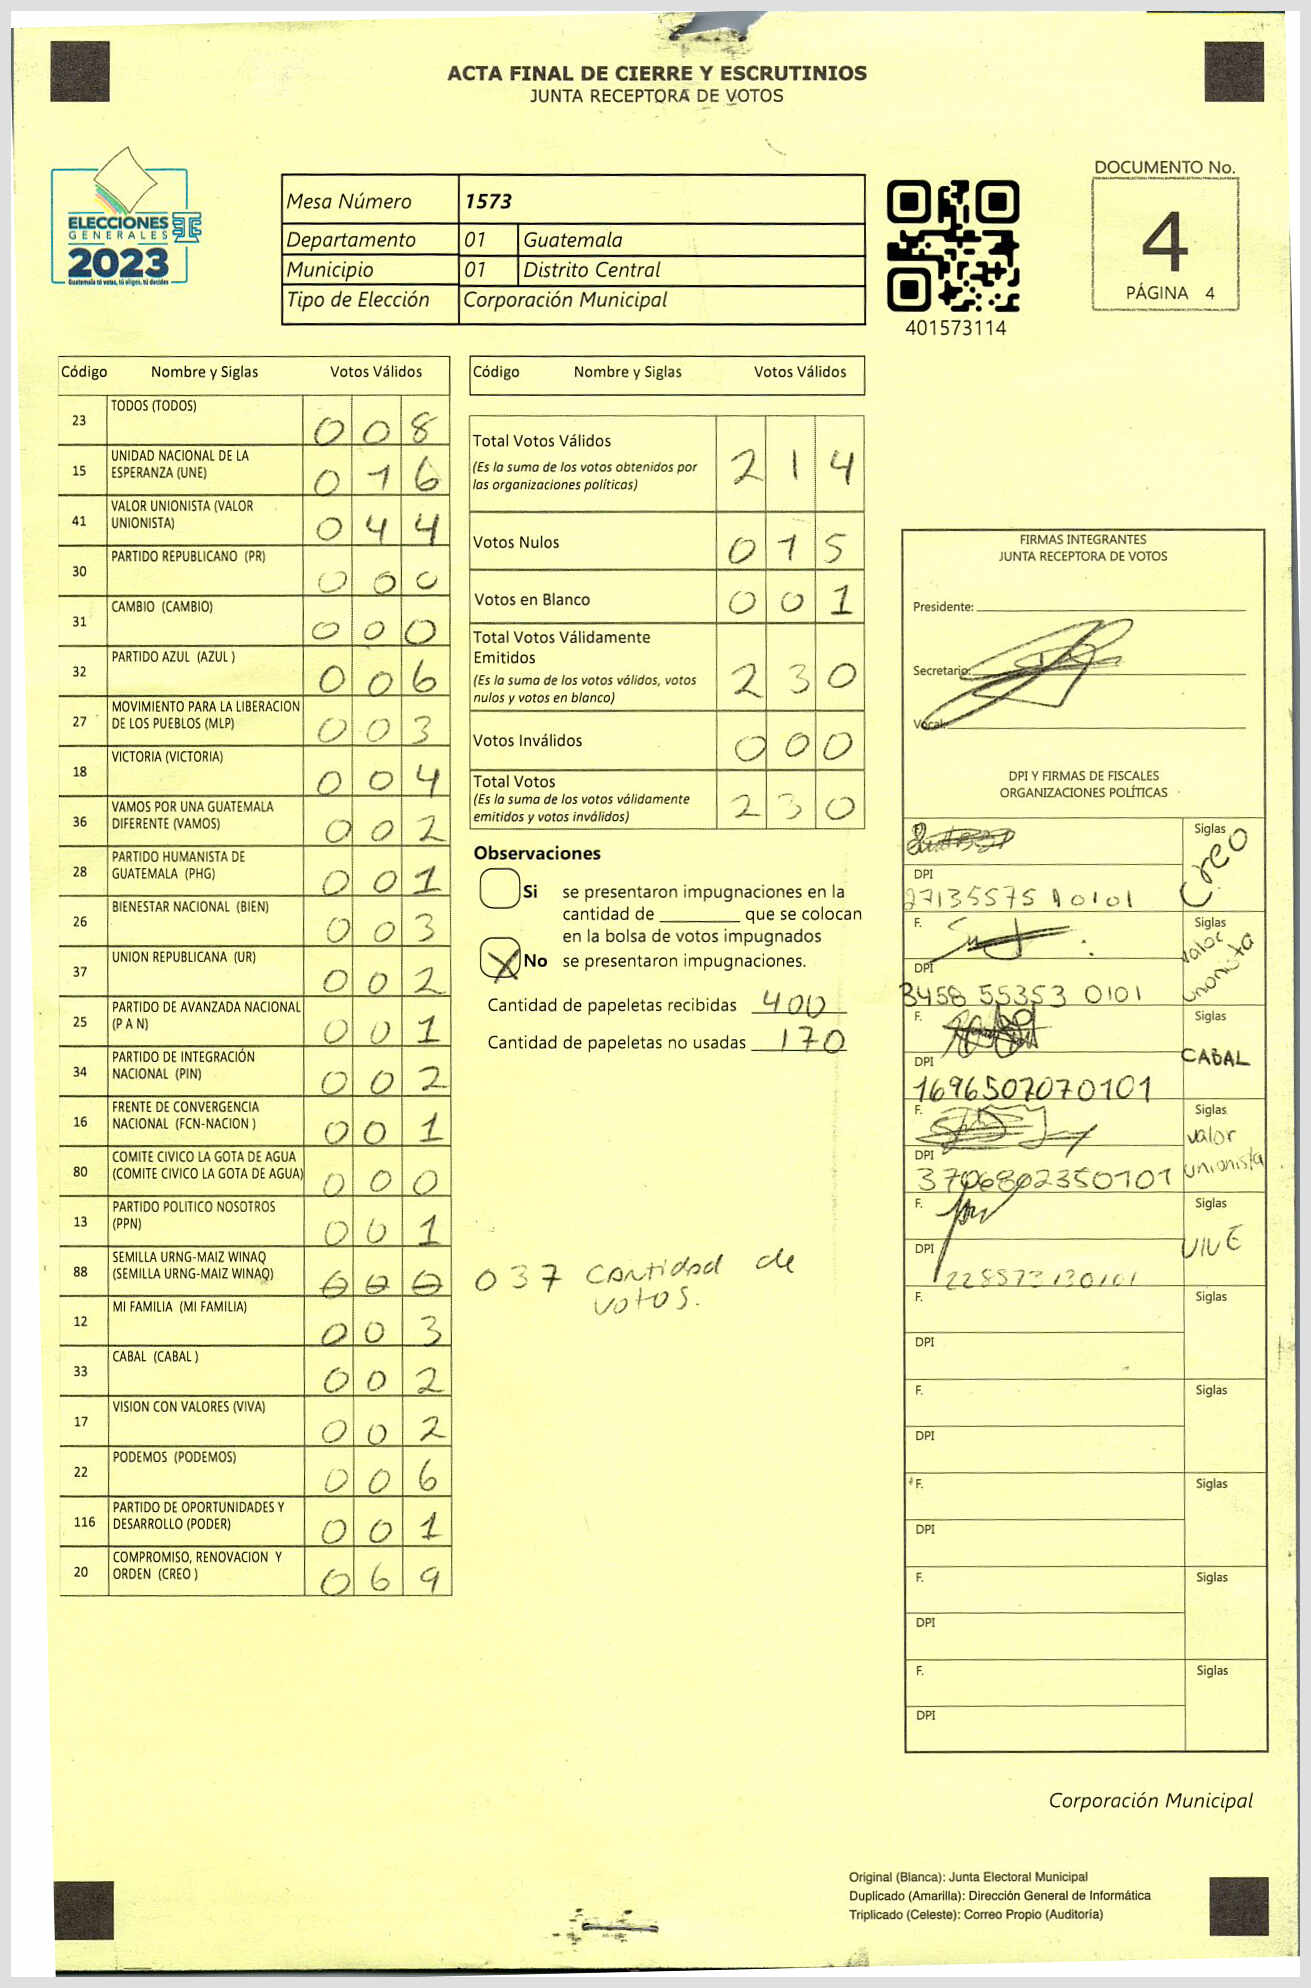 ACTA FINAL DE CIERRE Y ESCRUTINIOS
JUNTA RECEPTORA DE VOTOS
ELECCIONES
GENERALES
2023
Guatemala tú votas, tú eliges, tú decides
Mesa Número 1573
Departamento 01 Guatemala
Municipio 01 Distrito Central
Tipo de Elección Corporación Municipal
401573114
DOCUMENTO No.
4
PÁGINA 4
Código Nombre y Siglas Votos Válidos
23 TODOS (TODOS) 0 0 8
15 UNIDAD NACIONAL DE LA
ESPERANZA (UNE) 0 1 6
41 VALOR UNIONISTA (VALOR
UNIONISTA) 0 4 4
30 PARTIDO REPUBLICANO (PR) 0 0 0
31 CAMBIO (CAMBIO) 0 0 0
32 PARTIDO AZUL (AZUL ) 0 0 6
27 MOVIMIENTO PARA LA LIBERACION
DE LOS PUEBLOS (MLP) 0 0 3
18 VICTORIA (VICTORIA) 0 0 4
36 VAMOS POR UNA GUATEMALA
DIFERENTE (VAMOS) 0 0 2
28 PARTIDO HUMANISTA DE
GUATEMALA (PHG) 0 0 1
26 BIENESTAR NACIONAL (BIEN) 0 0 3
37 UNION REPUBLICANA (UR) 0 0 2
25 PARTIDO DE AVANZADA NACIONAL
(P A N) 0 0 1
34 PARTIDO DE INTEGRACIÓN
NACIONAL (PIN) 0 0 2
16 FRENTE DE CONVERGENCIA
NACIONAL (FCN-NACION ) 0 0 1
80 COMITE CIVICO LA GOTA DE AGUA
(COMITE CIVICO LA GOTA DE AGUA) 0 0 0
13 PARTIDO POLITICO NOSOTROS
(PPN) 0 0 1
88 SEMILLA URNG-MAIZ WINAQ
(SEMILLA URNG-MAIZ WINAQ) 0 0 0
037 cantidad de
votos.
12 MI FAMILIA (MI FAMILIA) 0 0 3
33 CABAL (CABAL ) 0 0 2
17 VISION CON VALORES (VIVA) 0 0 2
22 PODEMOS (PODEMOS) 0 0 6
116 PARTIDO DE OPORTUNIDADES Y
DESARROLLO (PODER) 0 0 1
20 COMPROMISO, RENOVACION Y
ORDEN (CREO ) 0 6 9
Código Nombre y Siglas Votos Válidos
Total Votos Válidos 2 1 4
(Es la suma de los votos obtenidos por
las organizaciones políticas)
Votos Nulos 0 1 5
Votos en Blanco 0 0 1
Total Votos Válidamente
Emitidos 2 3 0
(Es la suma de los votos válidos, votos
nulos y votos en blanco)
Votos Inválidos 0 0 0
Total Votos 2 3 0
(Es la suma de los votos válidamente
emitidos y votos inválidos)
Observaciones
Si se presentaron impugnaciones en la
cantidad de ________ que se colocan
en la bolsa de votos impugnados
No se presentaron impugnaciones.
Cantidad de papeletas recibidas 400
Cantidad de papeletas no usadas 170
FIRMAS INTEGRANTES
JUNTA RECEPTORA DE VOTOS
Presidente:
Secretario:
Vocal:
DPI Y FIRMAS DE FISCALES
ORGANIZACIONES POLÍTICAS
Siglas
Creo
DPI
27135575 10101
F. Siglas
valor
unionista
DPI
3458 55353 0101
F. Siglas
CABAL
DPI
1696507070101
F. Siglas
valor
unionista
DPI
3706802350101
F. Siglas
DPI
F. Siglas
DPI
F. Siglas
DPI
F. Siglas
DPI
F. Siglas
DPI
F. Siglas
DPI
Corporación Municipal
Original (Blanca): Junta Electoral Municipal
Duplicado (Amarilla): Dirección General de Informática
Triplicado (Celeste): Correo Propio (Auditoría)